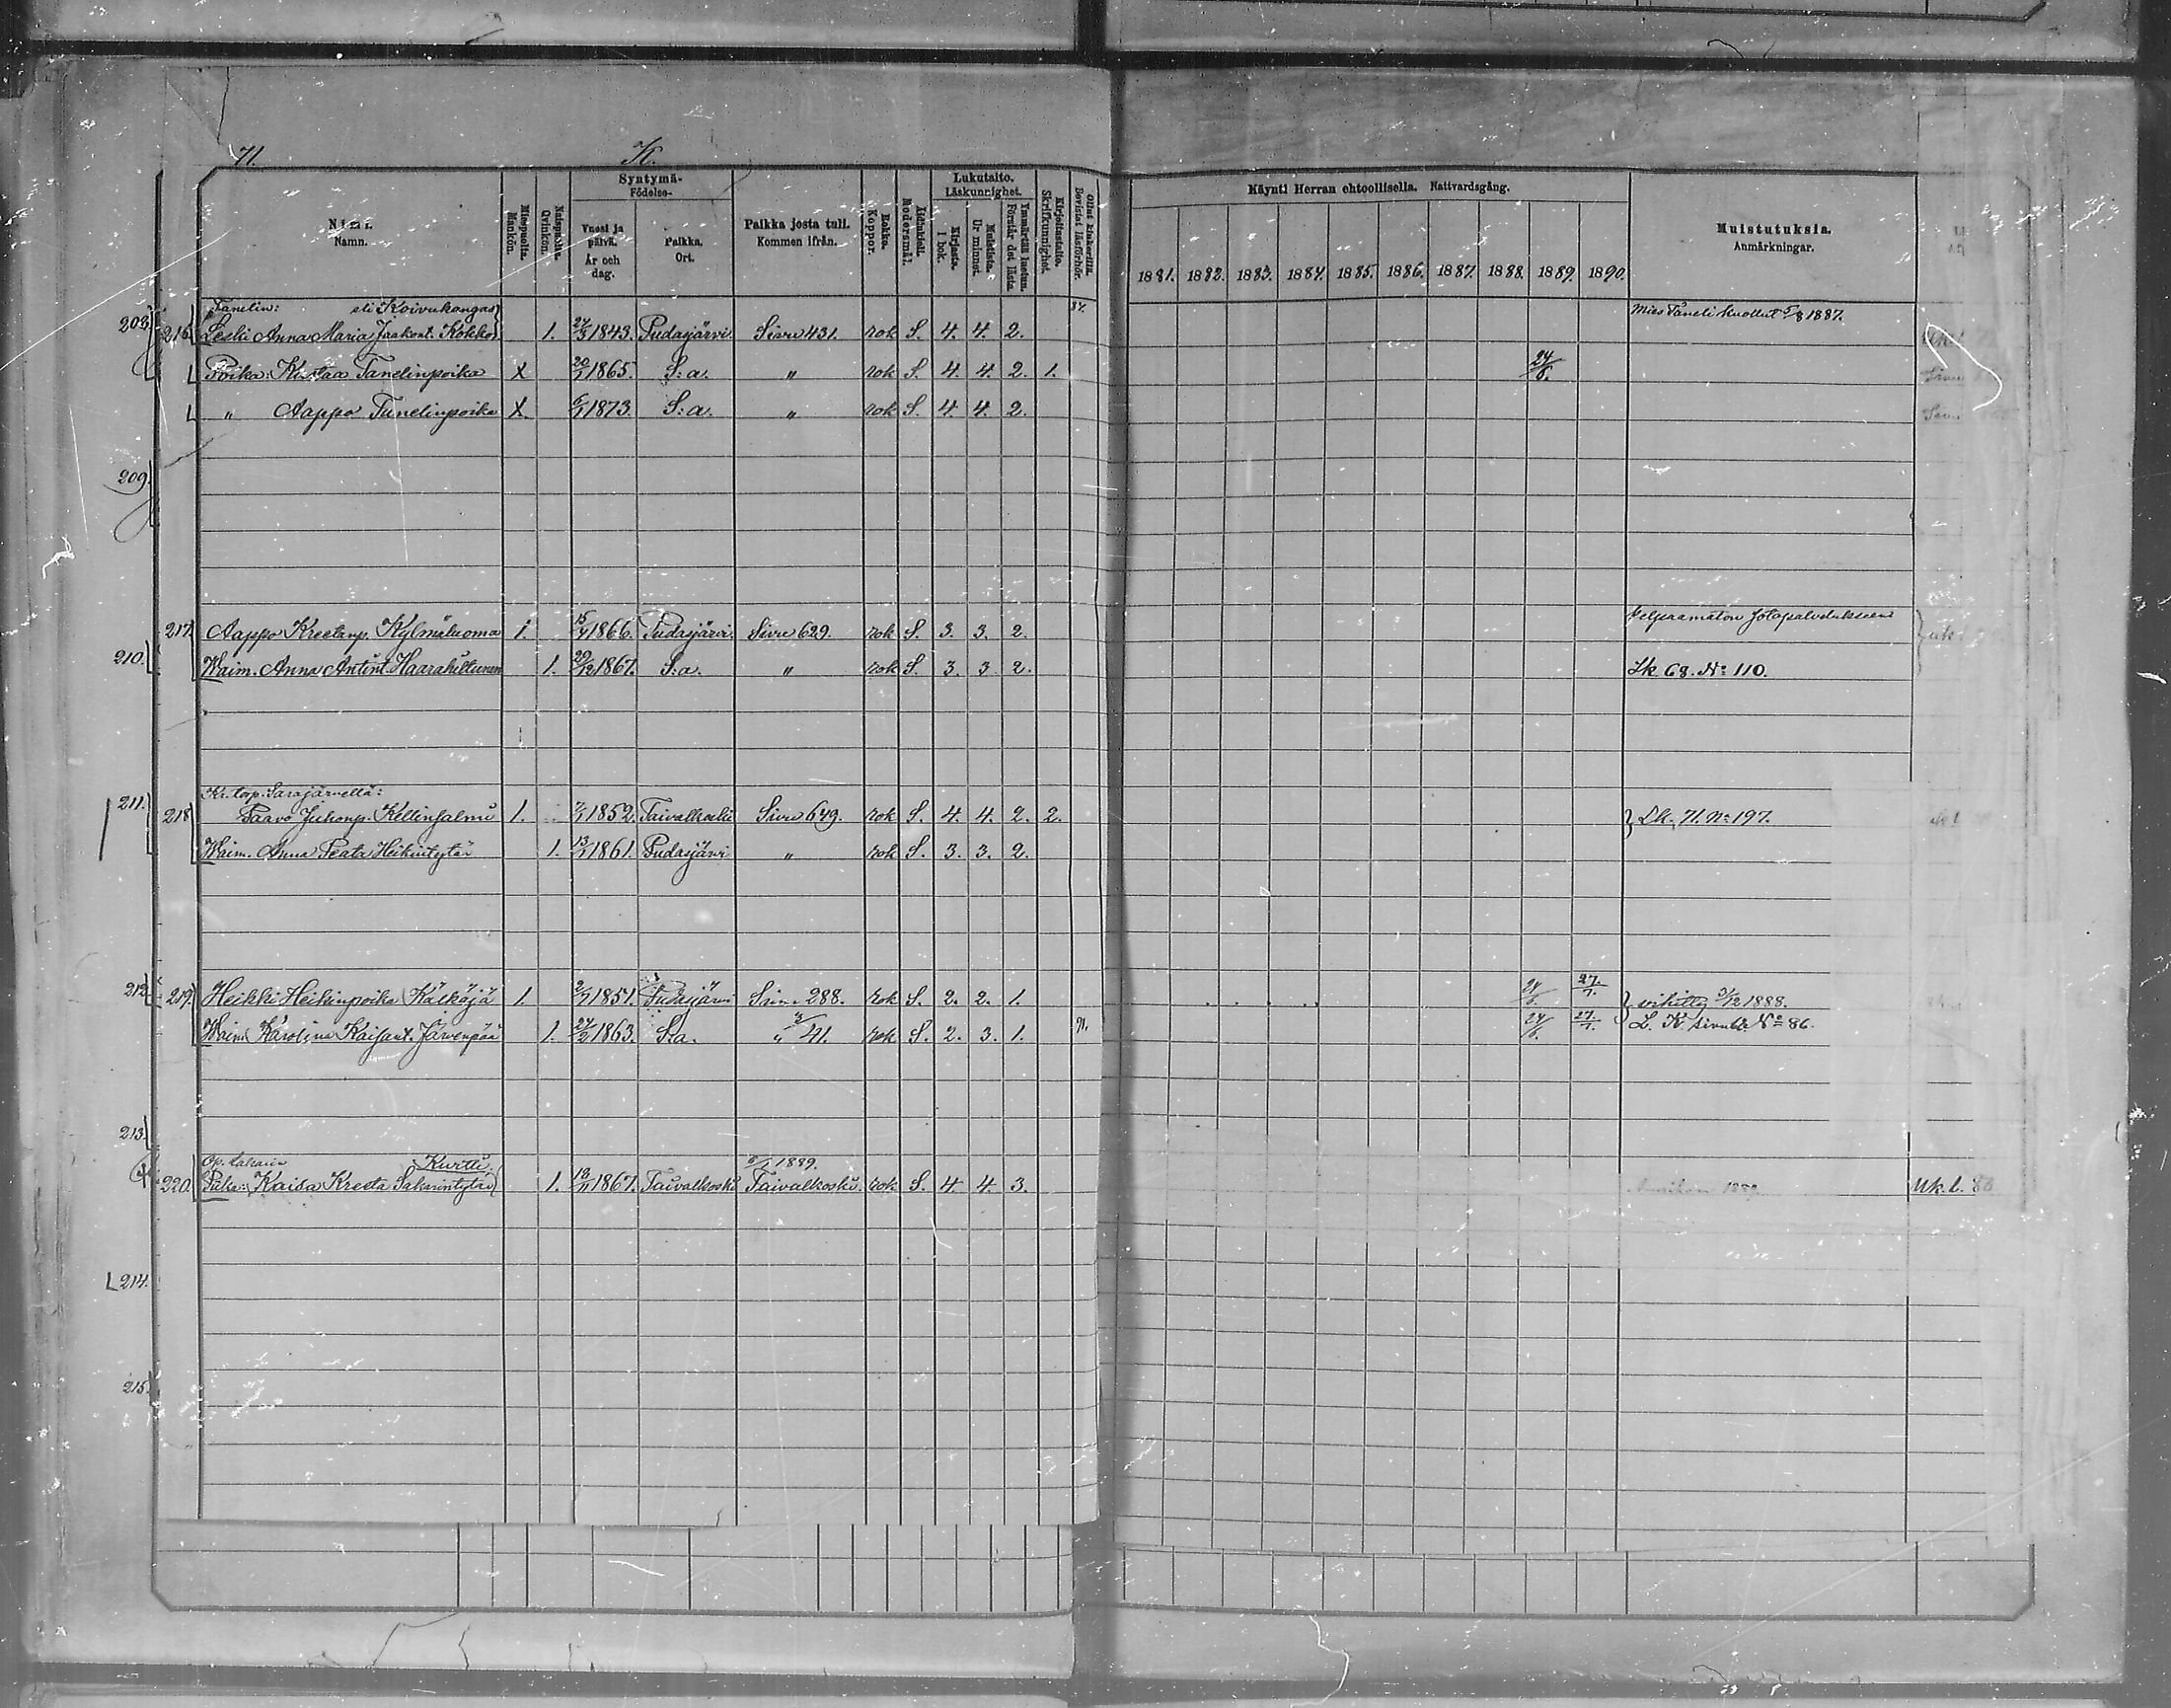 71. K.
Nimi. Namn.
Miespuolia. Mankön.
Naispuolia. Qvinkön.
Syntymä- Födelse-
Vuosi ja päivä. År och dag.
Paikka. Ort.
Paikka josta tuli. Kommen ifrån.
Rokko. Koppor.
Äidinkieli. Modersmål.
Lukutaito. Läskunnighet.
Kirjasta. I bok.
Muistista. Ur minnet.
Ymmärtää luetun. Förstår det lästa
Kirjoitustaito. Skrifkunnighet.
Käynti Herran ehtoollisella. Nattvardsgång.
1881. 1882. 1883. 1884. 1885. 1886. 1887. 1888. 1889. 1890.
Muistutuksia. Anmärkningar.
Tanelin: eli Koivukangas 87. Mies Taneli kuollut 5/8 1887.
208. 216. Leski Anna Maria Jaakont. Kokko 1. 1843. Pudasjärvi Sivu 431. rok S. 4. 4. 2.
Poika: Kustaa Tanelinpoika X 1865. S:a. „ rok S. 4. 4. 2. 1. 24/6.
„ Aappo Tanelinpoika X 6/1 1873. S:a. „ rok S. 4. 4. 2.
209.
217. Aappo Kreetanp. Kylmäluoma 1. 1866. Pudasjärvi Sivu 629. rok S. 3. 3. 2. Kelpaamaton sotapalvelukseen
210. Waim. Anna Antint. Haarahiltunen 1. 29/12 1867. S:a. „ rok S. 3. 3. 2. Lk. 68. No 110.
Kr. torp. Sarajärvellä:
211. 218. Paavo Juhonp. Kellinsalmi 1. 1852. Taivalkoski Sivu 649. rok S. 4. 4. 2. 2. Lk. 71. No 197.
Waim. Anna Reata Heikintytär 1. 13/1 1861. Pudasjärvi „ rok S. 3. 3. 2.
212. 219. Heikki Heikinpoika Kälkäjä 1. 1851. Pudasjärvi Sivu 288. rok S. 2. 2. 1. 24/6. 27/7. vihitty 3/12 1888.
Waim. Karolina Kaisant. Järvenpää 1. 24/2 1863. S:a. „ 41. rok S. 2. 3. 1. 91. 24/6. 27/7. L. K. sivulle No 86.
213.
Kurtti. 1889.
220. Kaisa Kresta Sakarintytär 1. 1867. Taivalkoski Taivalkoski. rok S. 4. 4. 3. Uk. l. 86
214.
215.